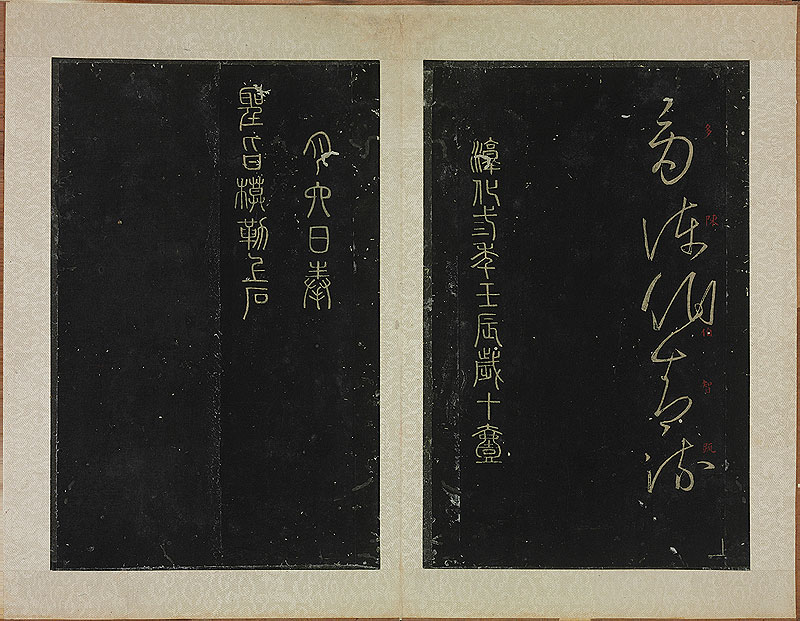 陳伯智
淳化三年壬辰歲十壹
月六日奉
聖旨模勒上石